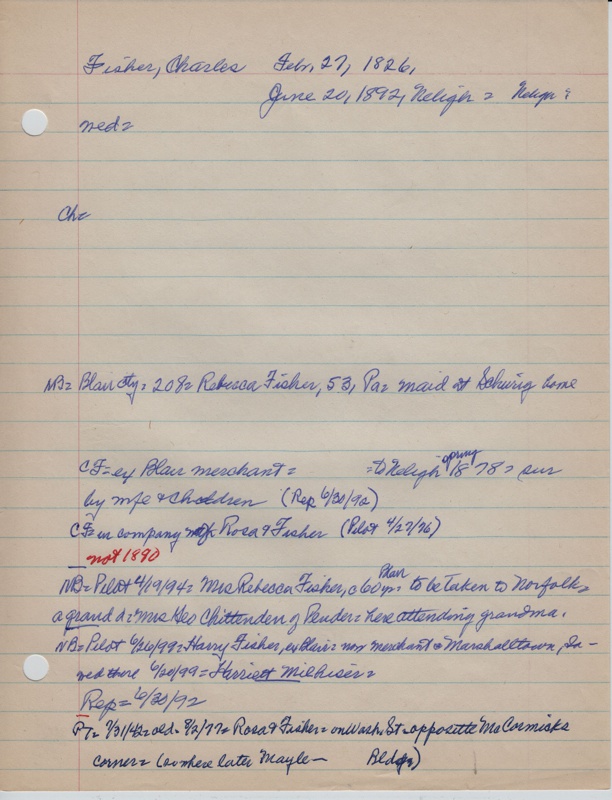 Fisher, Charles Febr, 27, 1826,
June 20, 1892, Neligh = Neligh =
wed =
Ch =
NB = Blair cty = 208 = Rebecca Fisher, 53, Pa = maid at Schwrig home
CF = ex Blair merchant = = to Neligh spring 1878 = sur
by wife & children (Rep 6/30/92)
CF = in company of Rosa & Fisher (Pilot 4/27/76)
not 1890
NB = Pilot 4/19/94 = Mrs Rebecca Fisher, c 60 yrs Blair to be taken to Norfolk =
a grand d = Mrs Geo Chittenden of Pender = here attending grandma.
NB = Pilot 6/26/99 = Harry Fisher, ex Blair = now merchant @ Marshalltown, Ia -
wed there 6/20/99 = Harriett Milhiser =
Rep = 6/30/92
PT = 7/31/42 = old = 8/2/77 = Rosa & Fisher = on Wash. St = opposite McCormicks
corner = (where later Mayle - Bldg)